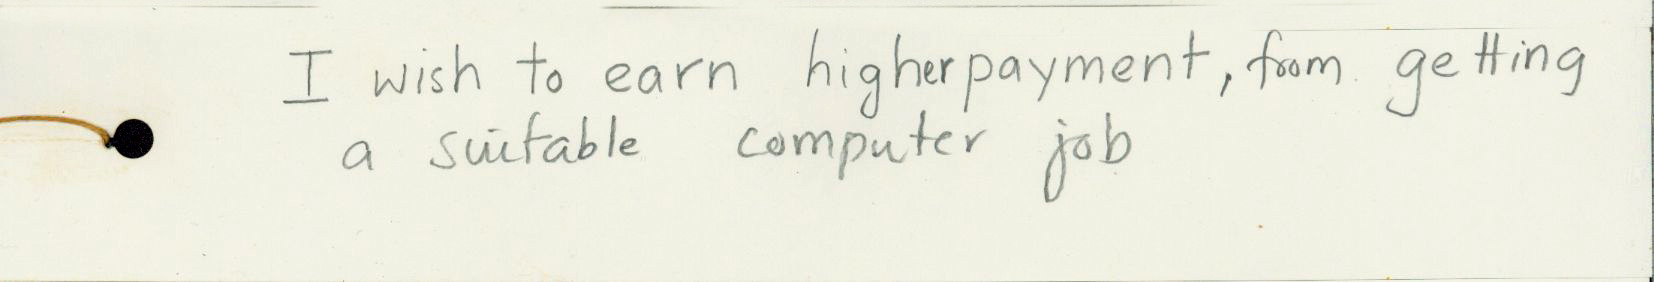 I wish to earn higher payment, from getting
a suitable computer job